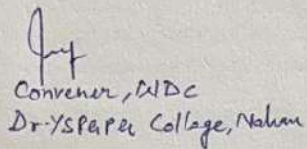 Convener, WDC
Dr. YSPaPer College, Nahan